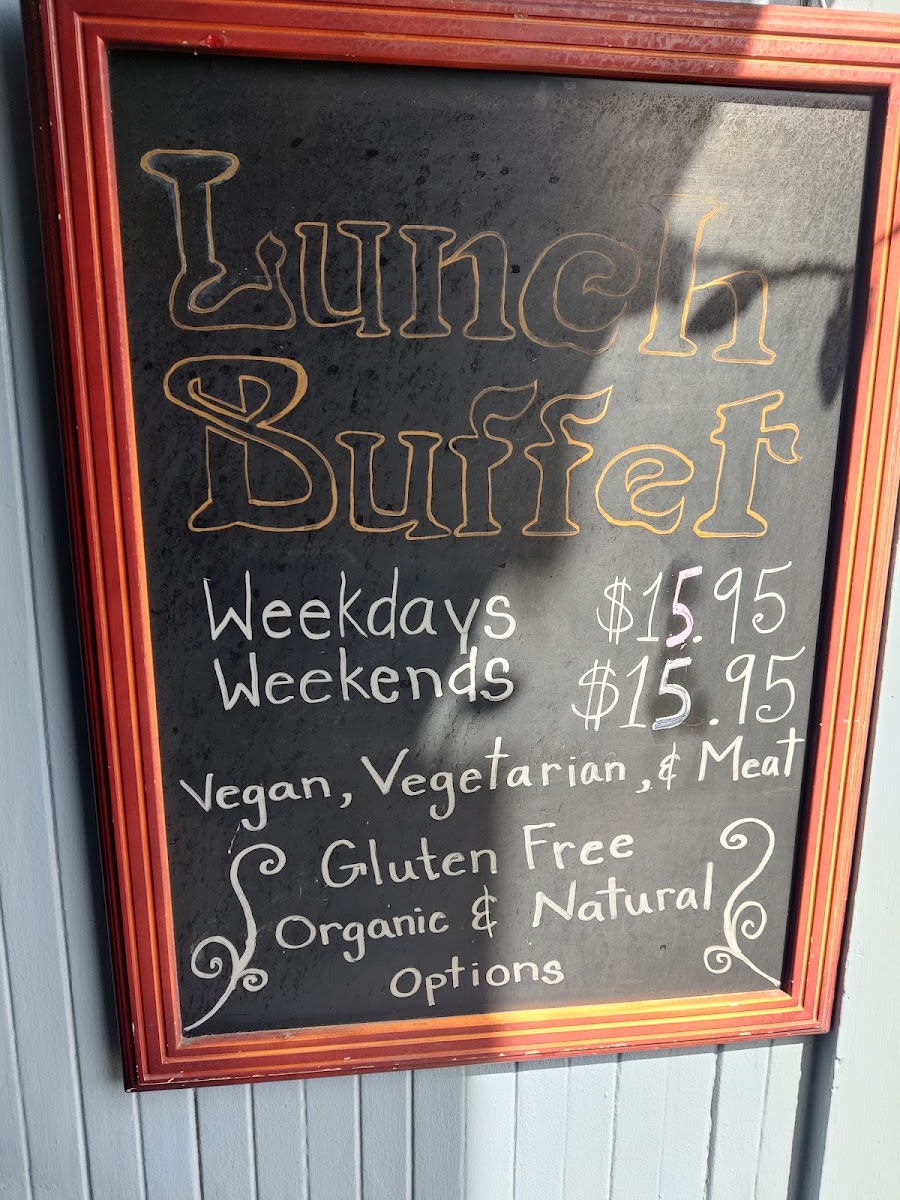 Lunch
Buffet
Weekdays $15.95
Weekends $15.95
Vegan, Vegetarian, & Meat
Gluten Free
Organic & Natural
Options